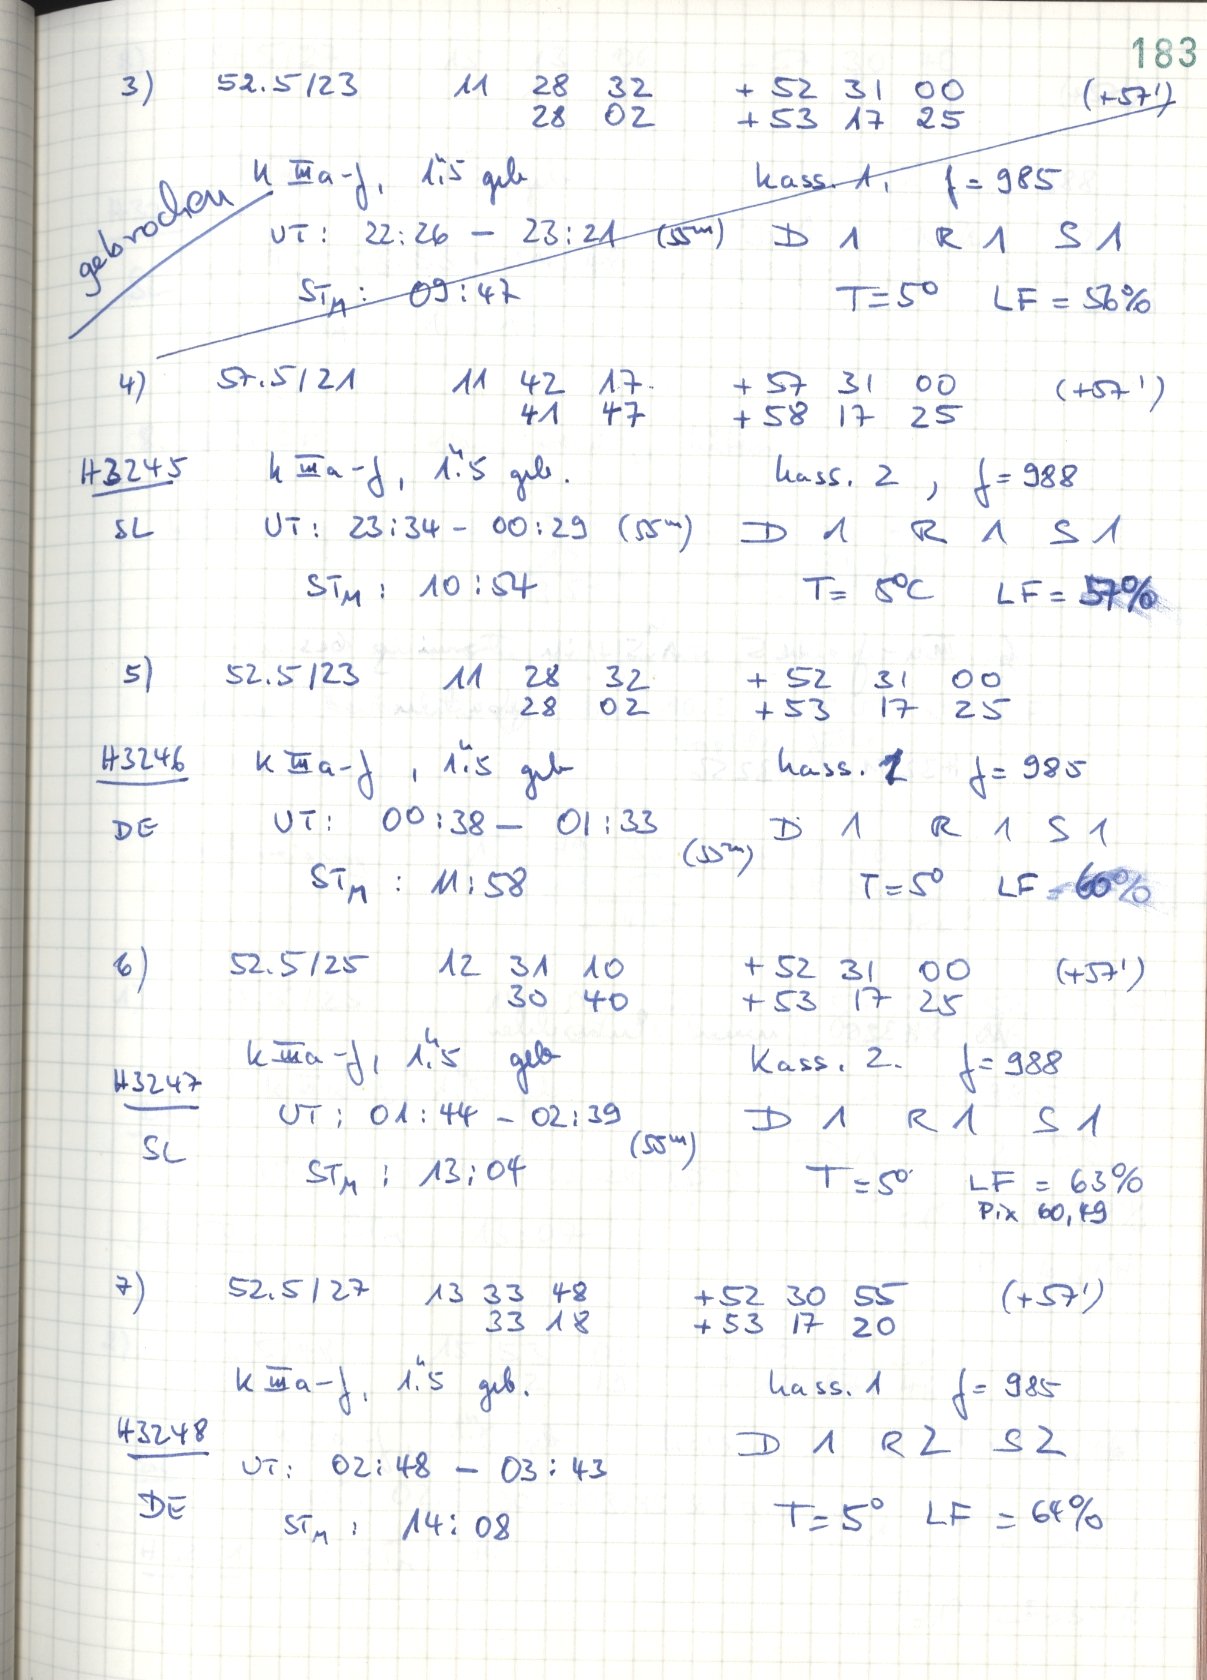 183
3) 52.5/23 11 28 32 + 52 31 00 (+57')
28 02 + 53 17 25
gebrochen
k IIIa-f, 1."5 geb Kass. 1, f = 985
UT: 22:26 - 23:21 (55m) D 1 R 1 S 1
STM: 09:47 T=5° LF = 56%
4) 57.5/21 11 42 17 + 57 31 00 (+57')
41 47 + 58 17 25
H3245 k IIIa-f, 1."5 geb. Kass. 2, f = 988
SL UT: 23:34 - 00:29 (55m) D 1 R 1 S 1
STM: 10:54 T= 5°C LF = 57%
5) 52.5/23 11 28 32 + 52 31 00
28 02 + 53 17 25
H3246 k IIIa-f, 1."5 geb Kass. 1 f = 985
DE UT: 00:38 - 01:33 (55m) D 1 R 1 S 1
STM: 11:58 T=5° LF = 60%
6) 52.5/25 12 31 10 + 52 31 00 (+57')
30 40 + 53 17 25
k IIIa-f, 1."5 geb Kass. 2. f = 988
H3247 UT: 01:44 - 02:39 (55m) D 1 R 1 S 1
SL STM: 13:04 T=5° LF = 63%
Pix 60,49
7) 52.5/27 13 33 48 +52 30 55 (+57')
33 18 +53 17 20
k IIIa-f, 1."5 geb. Kass. 1 f = 985
H3248 UT: 02:48 - 03:43 D 1 R 2 S 2
DE STM: 14:08 T=5° LF = 64%